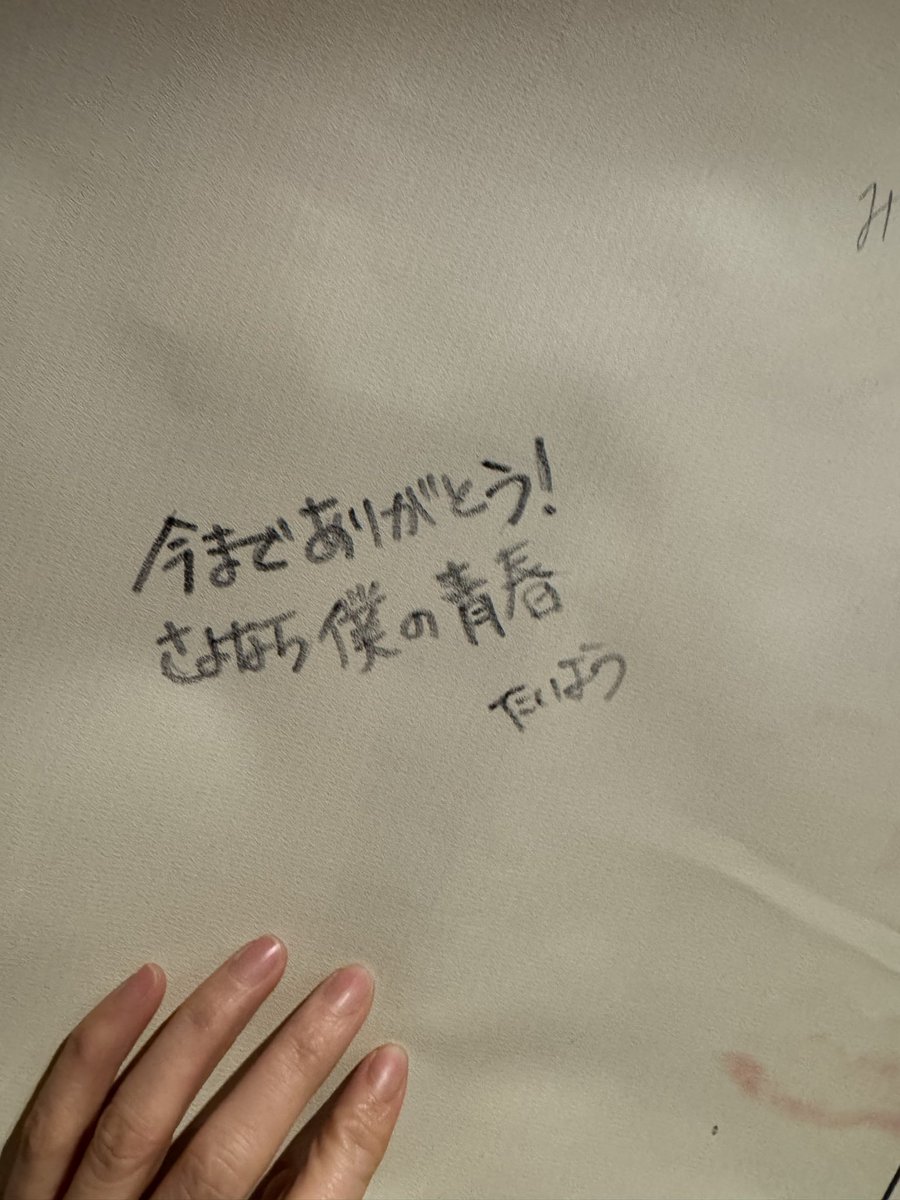 み
今までありがとう!
さよなら僕の青春
たいぼう